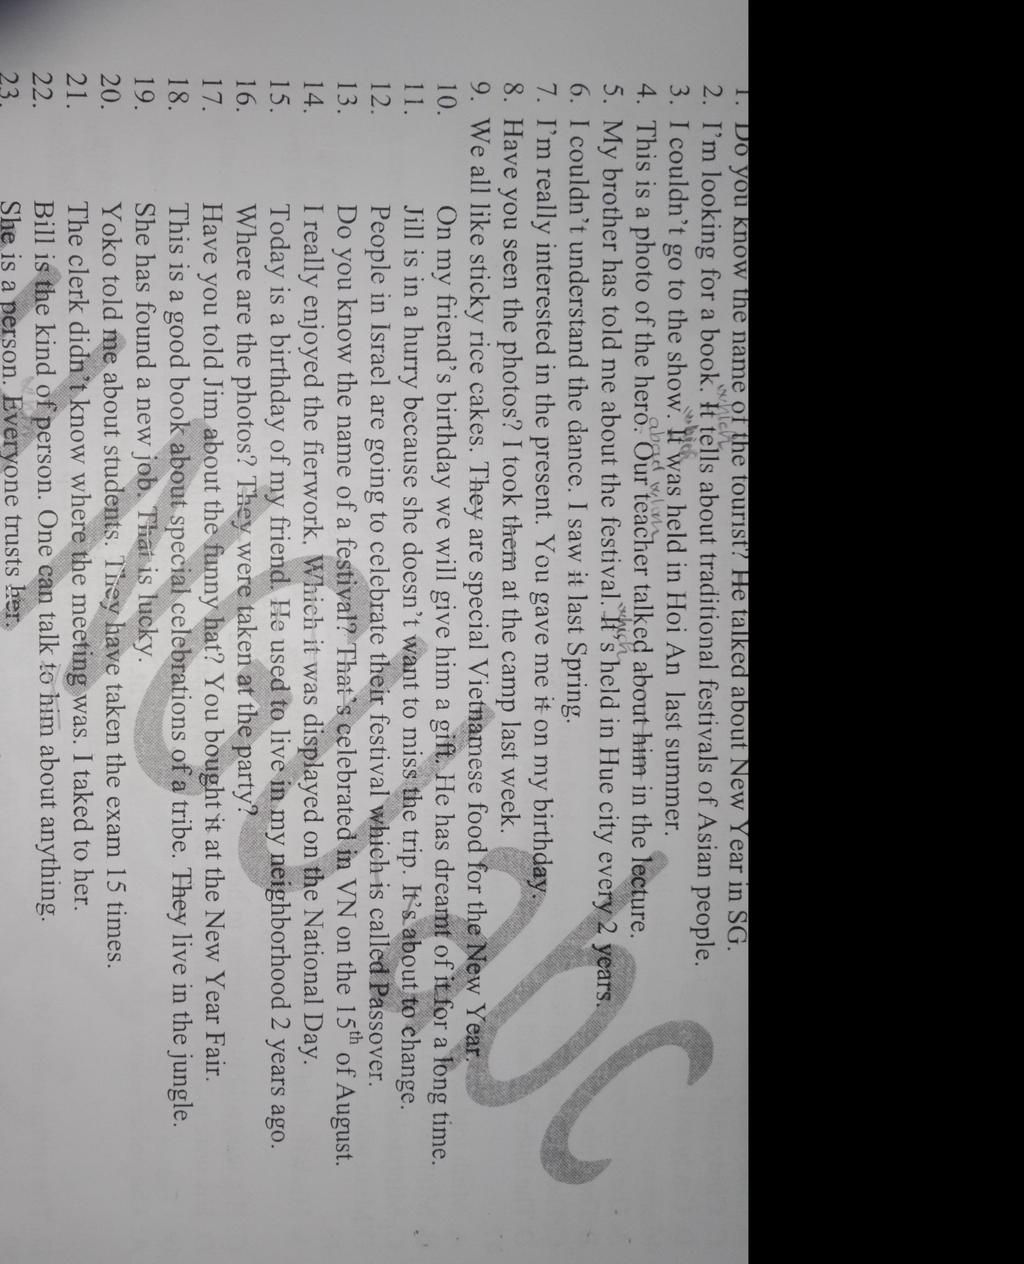 1. Do you know the name of the tourist? He talked about New Year in SG.
which
2. I'm looking for a book. It tells about traditional festivals of Asian people.
which
3. I couldn't go to the show. It was held in Hoi An last summer.
whom
4. This is a photo of the hero. Our teacher talked about him in the lecture.
which
5. My brother has told me about the festival. It's held in Hue city every 2 years.
6. I couldn't understand the dance. I saw it last Spring.
7. I'm really interested in the present. You gave me it on my birthday.
8. Have you seen the photos? I took them at the camp last week.
9. We all like sticky rice cakes. They are special Vietnamese food for the New Year.
10. On my friend's birthday we will give him a gift. He has dreamt of it for a long time.
11. Jill is in a hurry because she doesn't want to miss the trip. It's about to change.
12. People in Israel are going to celebrate their festival which is called Passover.
13. Do you know the name of a festival? That's celebrated in VN on the 15th of August.
14. I really enjoyed the fierwork. Which it was displayed on the National Day.
15. Today is a birthday of my friend. He used to live in my neighborhood 2 years ago.
16. Where are the photos? They were taken at the party?
17. Have you told Jim about the funny hat? You bought it at the New Year Fair.
18. This is a good book about special celebrations of a tribe. They live in the jungle.
19. She has found a new job. That is lucky.
20. Yoko told me about students. They have taken the exam 15 times.
21. The clerk didn't know where the meeting was. I taked to her.
22. Bill is the kind of person. One can talk to him about anything.
23. She is a person. Everyone trusts her.
abc